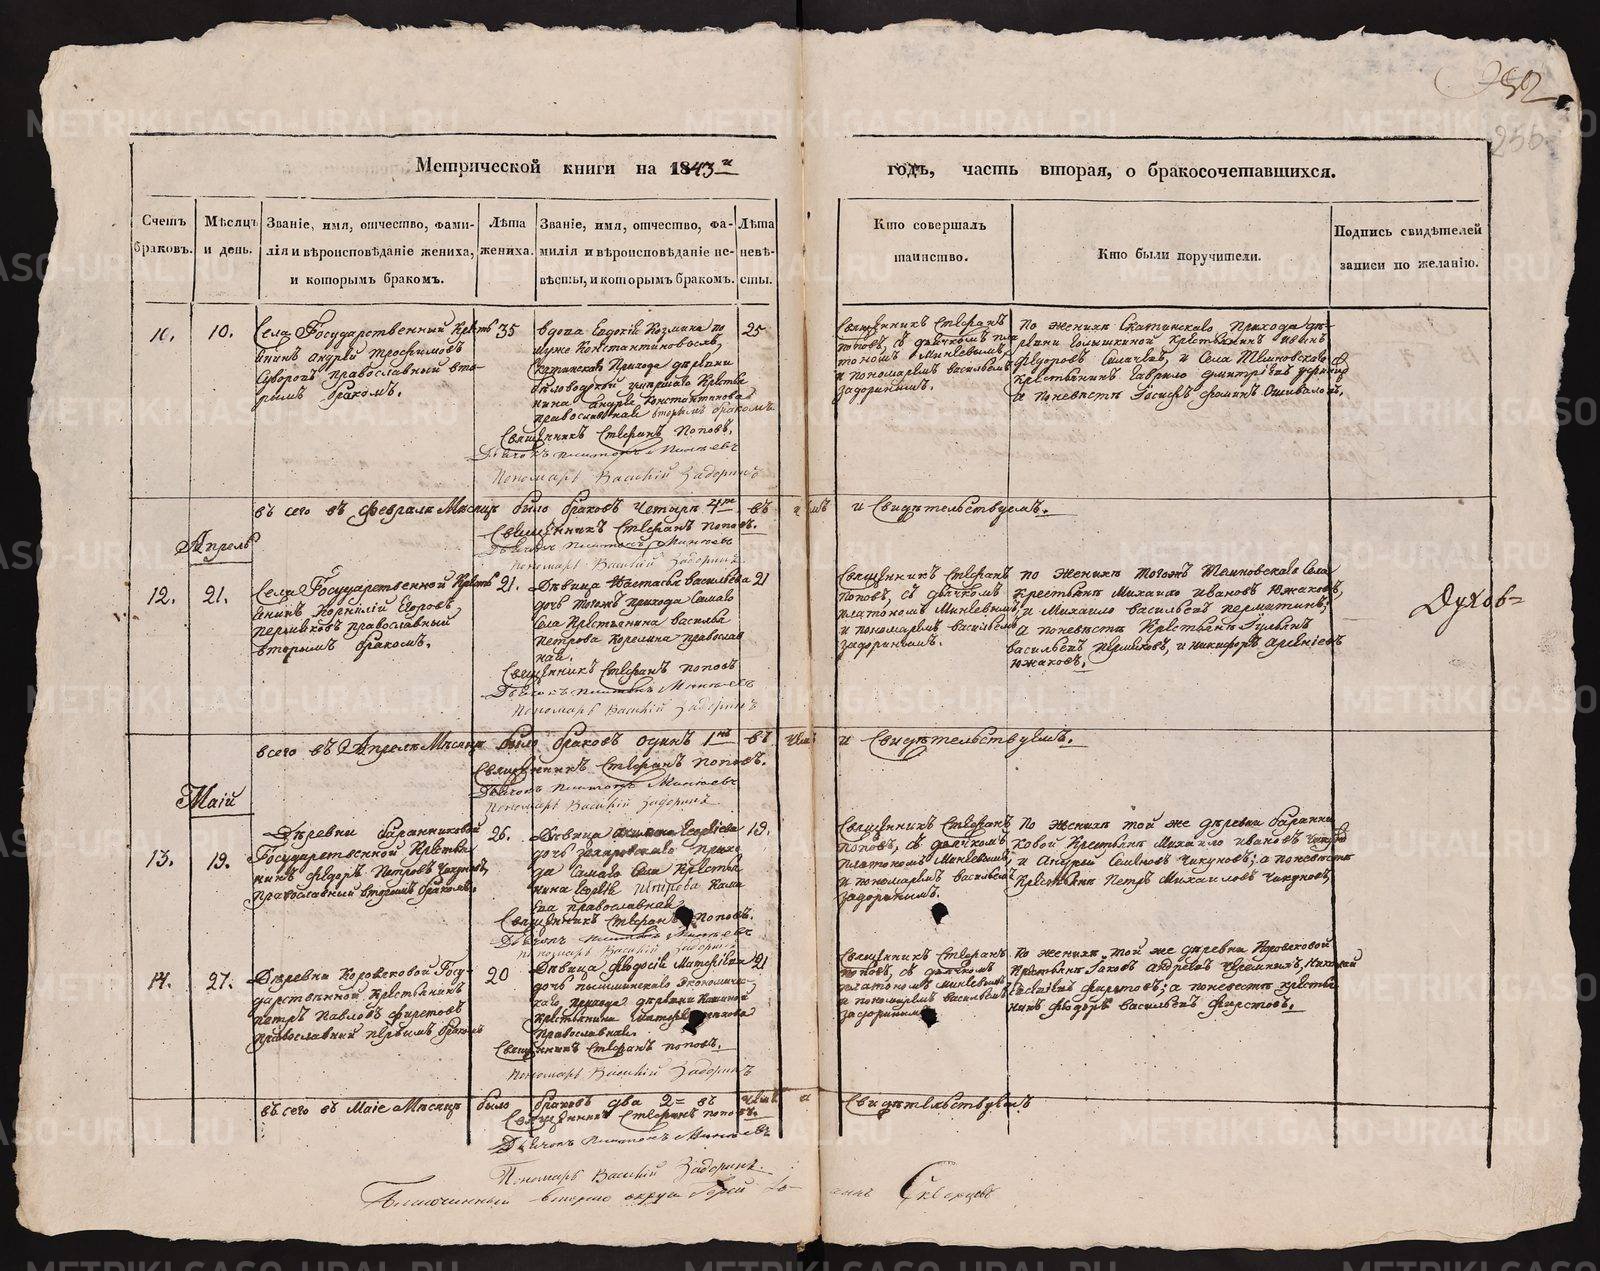 252
256
Метрической книги на 1843й годъ, часть вторая, о бракосочетавшихся.
Счетъ браковъ.
Мѣсяцъ и день.
Званіе, имя, отчество, фами-
лія и вѣроисповѣданіе жениха,
и которымъ бракомъ.
Лѣта
жениха.
Званіе, имя, отчество, фа-
милія и вѣроисповѣданіе не-
вѣсты, и которымъ бракомъ.
Лѣта
невѣ-
сты.
Кто совершалъ
таинство.
Кто были поручители.
Подпись свидѣтелей
записи по желанію.
11.
10.
Села Государственный Крестья
нинъ Андрей Трофимовъ
Суворовъ православный вто-
рымъ бракомъ.
35
вдова Евдокія Козмина по
мужѣ Константиновская,
прихода деревни
православная вторымъ бракомъ.
Священникъ Стефанъ Поповъ.
Дьячокъ Платонъ Минѣевъ
Пономарь Василій Задоринъ
25
Священникъ Стефанъ
Поповъ, съ дьячкомъ Пла
тономъ Минѣевымъ,
и пономаремъ Васильемъ
Задоринымъ.
По женихѣ Скатинскаго прихода де-
ревни крестьянинъ
Федоровъ и села
крестьянинъ Гаврило Дмитріевъ
а по невѣстѣ Іосифъ Фоминъ
въ сего въ февралѣ Мѣсяцѣ было браковъ четыре 4ре въ чемъ и Свидѣтельствуемъ.
Священникъ Стефанъ Поповъ.
Дьячокъ Платонъ Минѣевъ
Пономарь Василій Задоринъ
Апрель
12.
21.
Села Государственной Крестья
янинъ Корнилій Егоровъ
Пермяковъ православный
вторымъ бракомъ.
21.
Дѣвица Настасья Васильева
дочь тогожъ прихода самаго
села Крестьянина Василья
Петрова Корелина православ
ная.
Священникъ Стефанъ Поповъ
Дьячокъ Платонъ Минѣевъ
Пономарь Василій Задоринъ
21
Священникъ Стефанъ
Поповъ, съ дьячкомъ
Платономъ Минѣевымъ,
и пономаремъ Васильемъ
Задоринымъ.
по женихѣ тогожъ села
Крестьяне Михайло Ивановъ Южаковъ,
и Михайло Васильевъ
а по невѣстѣ Крестьяне
Васильевъ Пермяковъ, и Никифоръ Арсеніевъ
Южаковъ.
Духов=
всего въ Апрелѣ Мѣсяцѣ было браковъ одинъ 1нъ въ чемъ и Свидѣтельствуемъ.
Священникъ Стефанъ Поповъ.
Дьячокъ Платонъ Минѣевъ
Пономарь Василій Задоринъ
Маій
13.
19.
Деревни Баранниковой
Государственной Крестья
нинъ Федоръ Петровъ Чикуновъ,
православный вторымъ бракомъ.
26.
Дѣвица Георгіева
дочь прихо
да самаго села Крестья
нина Петрова
православная
Священникъ Стефанъ Поповъ.
Дьячокъ Платонъ Минѣевъ
Пономарь Василій Задоринъ
19.
Священникъ Стефанъ
Поповъ, съ дьячкомъ
Платономъ Минѣевымъ,
и пономаремъ Васильемъ
Задоринымъ.
По женихѣ той же деревни Баранни
ковой Крестьяне Михайло Ивановъ Чикуновъ
и Андрей Семеновъ Чикуновъ; а по невѣстѣ
Крестьянъ Петръ Михайловъ Чикуновъ,
14.
27.
Деревни Коровяковой Госу-
дарственной Крестьянинъ
Петръ Павловъ Фирстовъ
православный первымъ бракомъ
20
Дѣвица Федосія
дочь Пышминскаго Экономиче-
скаго прихода деревни
Крестьянина
православная.
Священникъ Стефанъ Поповъ.
Пономарь Василій Задоринъ
21
Священникъ Стефанъ
Поповъ, съ дьячкомъ
Платономъ Минѣевымъ
и пономаремъ Васильемъ
Задоринымъ
По женихѣ той же деревни Коровяковой
Крестьяне Іаковъ Андреевъ Черемныхъ, Николай
Васильевъ Фирстовъ; а по невѣстѣ крестья
нинъ Федоръ Васильевъ Фирстовъ.
въ сего въ Маіе Мѣсяцѣ было браковъ два 2= въ чемъ и Свидѣтельствуемъ
Священникъ Стефанъ Поповъ.
Дьячокъ Платонъ Минѣевъ
Пономарь Василій Задоринъ.
Благочинный втораго округа Іерей Скворцовъ
METRIKI.GASO-URAL.RU